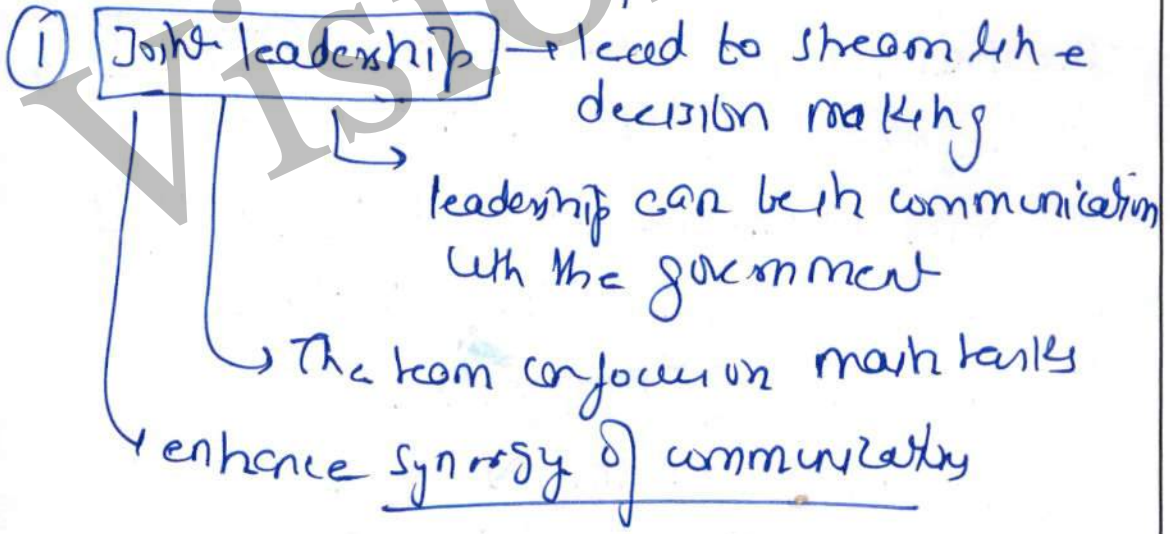 ① Joint leadership → lead to streamline
decision making
leadership can be in communication
with the government
→ The team can focus on main tasks
enhance synergy of communication
VISIO